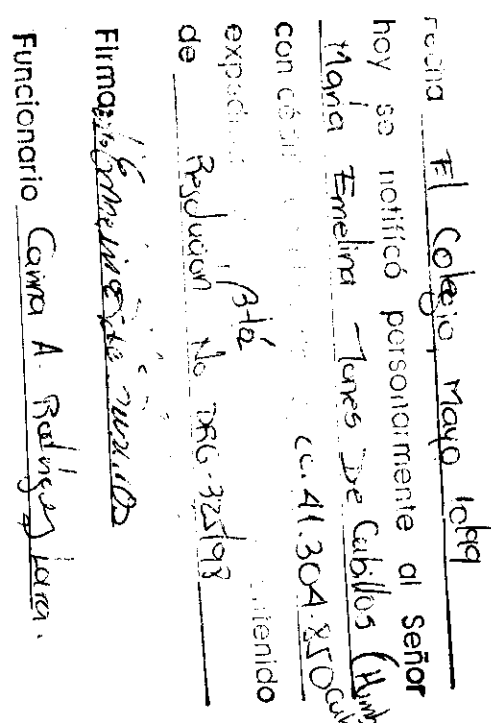 Fecha El Colegio, Mayo 10/99
hoy se notificó personalmente al Señor
Maria Emelina Torres De Cubillos (Humb
con cédula cc. 41.304.850
expedida Btá contenido
de Resolucion No DRG-325/98
Firma:
Funcionario Carina A. Rodríguez Lara.